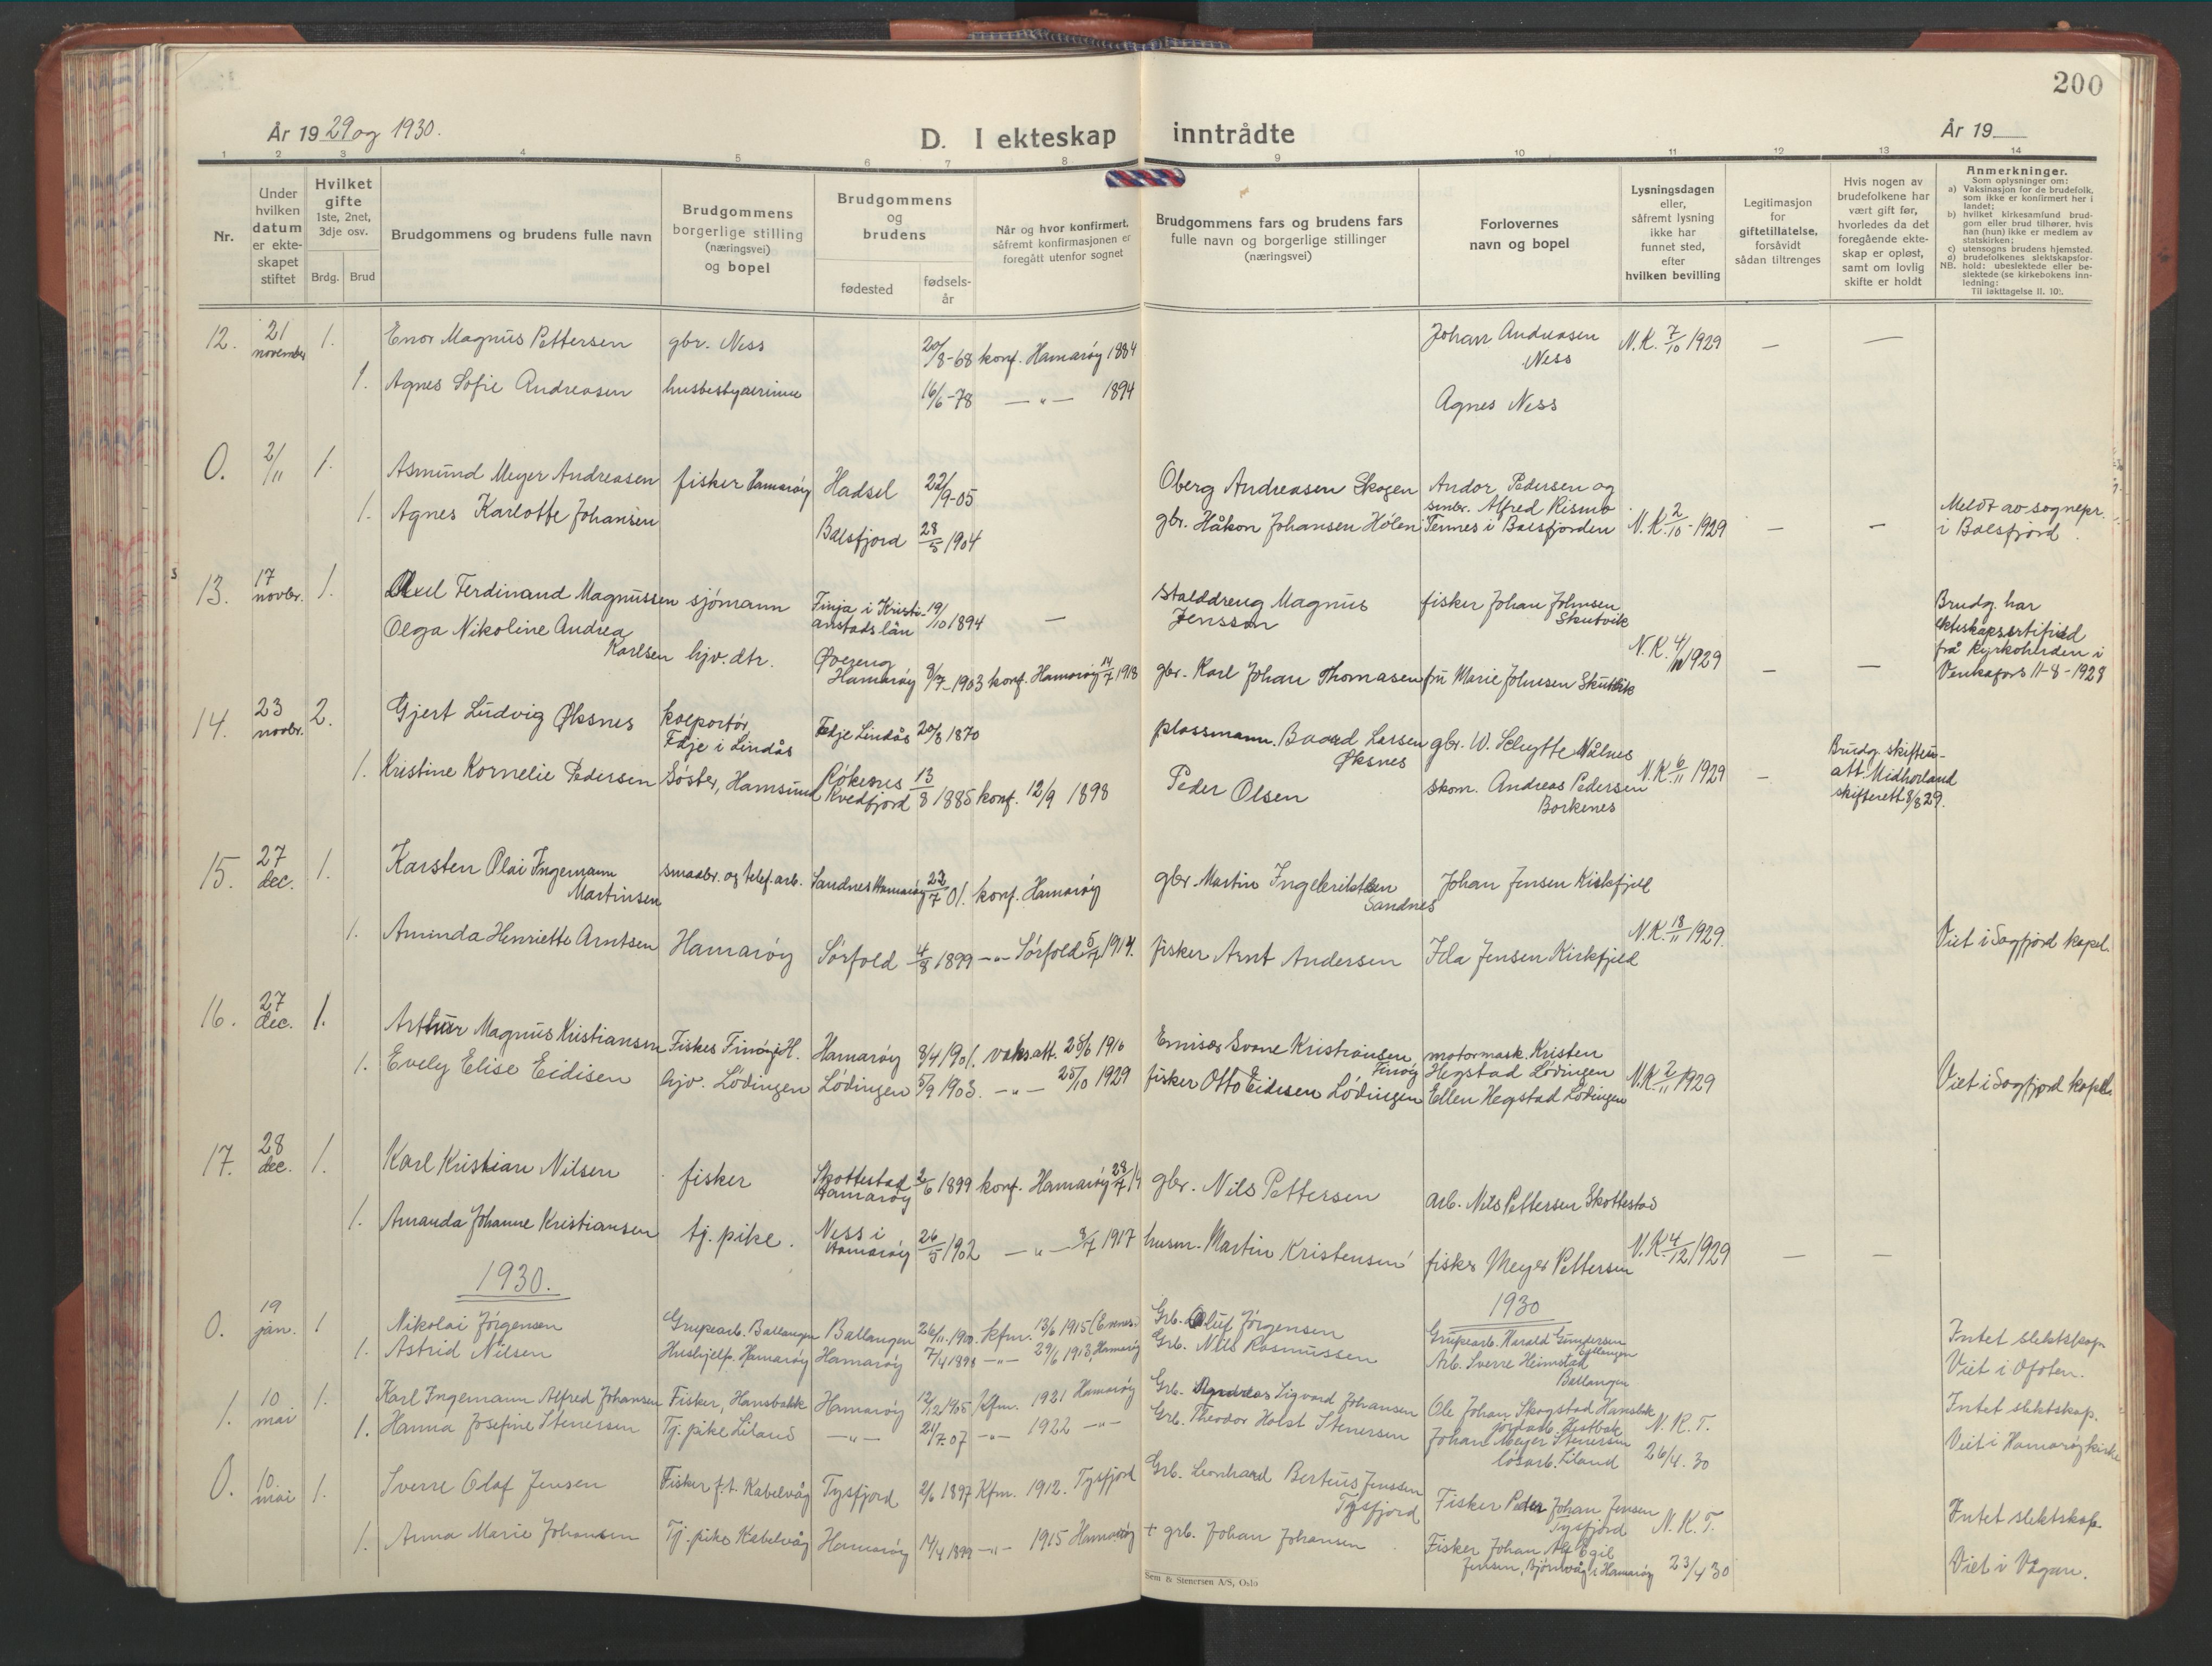 200
År 19 29 og 1930.
D. I ekteskap inntrådte
År 19
1 2 3 4 5 6 7 8 9 10 11 12 13 14
Nr.
Under hvilken datum er ekteskapet stiftet
Hvilket gifte 1ste, 2net, 3dje osv.
Brdg. Brud
Brudgommens og brudens fulle navn
Brudgommens borgerlige stilling (næringsvei) og bopel
Brudgommens og brudens
fødested
fødsels-år
Når og hvor konfirmert, såfremt konfirmasjonen er foregått utenfor sognet
Brudgommens fars og brudens fars fulle navn og borgerlige stillinger (næringsvei)
Forlovernes navn og bopel
Lysningsdagen eller, såfremt lysning ikke har funnet sted, efter hvilken bevilling
Legitimasjon for giftetillatelse, forsåvidt sådan tiltrenges
Hvis nogen av brudefolkene har vært gift før, hvorledes da det foregående ekteskap er opløst, samt om lovlig skifte er holdt
Anmerkninger.
Som oplysninger om:
a) Vaksinasjon for de brudefolk, som ikke er konfirmert her i landet;
b) hvilket kirkesamfund brudgom eller brud tilhører, hvis han (hun) ikke er medlem av statskirken;
c) utensogns brudens hjemsted.
d) brudefolkenes slektskapsforhold: ubeslektede eller beslektede (se kirkebokens innledning:
NB.
Til iakttagelse II. 10).
12. 21 november 1. Enor Magnus Pettersen gbr. Ness 20/8-68 konf. Hamarøy 1884 Johan Andreasen Ness N.K. 7/10 1929 — —
1. Agnes Sofie Andreasen husbestyrerinne 16/6-78 — " — 1894 Agnes Ness
0. 2/11 1. Asmund Meyer Andreasen fisker Hamarøy Hadsel 22/9-05 Oberg Andreasen Skogen Andor Pedersen og
1. Agnes Karlotte Johansen Balsfjord 28/5 1904 gbr. Håkon Johansen Holen smbr. Alfred Rismo Tennes i Balsfjorden N.K. 2/10-1929 — — Meldt av sognepr. i Balsfjord.
13. 17 novbr. 1. Axel Ferdinand Magnussen sjømann Finja i Kristianstads län 19/10 1894 — Stalddreng Magnus Jensson fisker Johan Johnsen Skutvik
Olga Nikoline Andrea Karlsen hjv. dtr. Øvereng Hamarøy 9/7-1903 konf. Hamarøy 14/7 1918 gbr. Karl Johan Thomasen fru Marie Johnsen Skutvik N.K. 4/11 1929 — — Brudg. har ekteskapssertifikat frå kyrkoherden i 11-8-1928
14. 23 novbr. 2. Gjert Ludvig Øksnes kolportør Fdje i Lindås Fedje Lindås 20/8 1870 plassmann. Baard Larsen Øksnes gbr. W. Schytte Nålnes
1. Kristine Kornelie Pedersen Søster, Hamsund Røkenes Kvedfjord 13/8 1885 konf. 12/9 1898 Peder Olsen skom. Andreas Pedersen Borkenes N.K. 6/11 1929 — Brudg. skifteratt. Midhorland skifterett 8/8 29.
15. 27 dec. 1. Karsten Olai Ingemann Martinsen smaabr. og telef.arb. Sandnes Hamarøy 22/7 01. konf. Hamarøy gbr. Martin Ingebriktsen Sandnes Johan Jensen Kirkfjell
1. Aminda Henriette Arntsen Hamarøy Sørfold 4/8 1899 — " — Sørfold 5/7 1914. fisker Arnt Andersen Ida Jensen Kirkfjeld N.K. 18/11 1929. Viet i Sagfjord kapel.
16. 27 dec. 1. Arthur Magnus Kristiansen Fisker Finøy i H. Hamarøy 8/4 1901. vaks.att. 25/6 1910 Emisær Svane Kristiansen Finøy motormask. Kristen Hegstad Lødingen
1. Evely Elise Eidisen hjv. Lødingen Lødingen 5/9 1903. — " — 25/10 1929 fisker Otto Eidesen Lødingen Ellen Hegstad Lødingen N.K. 2/11 1929 Viet i Sagfjord kapel.
17. 28 dec. 1. Karl Kristian Nilsen fisker Skottestad Hamarøy 2/6 1899 konf. Hamarøy 28/7 14 gbr. Nils Pettersen arb. Nils Pettersen Skottestad
1. Amanda Johanne Kristiansen tj. pike. Ness i Hamarøy 26/5 1902 — " — 8/7 1917 husm. Martin Kristensen fisker Meyer Pettersen N.K. 4/12 1929 — —
1930. 1930
0. 19 jan. 1 Nikolai Jørgensen Grubearb. Ballangen Ballangen 26/11. 1900. kfm. 13/6 1915 (Evenes) Grb. Oluf Jørgensen Grubearb. Harald Gundersen Ballangen Intet slektskap
1. Astrid Nilsen Hushjelp. Hamarøy Hamarøy 7/4 1898 — " — 29/6 1913, Hamarøy Grb. Nils Rasmussen Arb. Sverre Heimstad Ballangen Viet i Ofoten.
1. 10 mai 1. Karl Ingemann Alfred Johansen Fisker, Hansbakk Hamarøy 12/2 1905 Kfm. 1921 Hamarøy Grb. Andreas Sigvard Johansen Ole Johan Skogstad Hansbk N.K.T. Intet slektskap.
1. Hanna Josefine Stenersen Tj. pike Liland — " — 21/7. 07 — " — 1922 — " — Grb. Theodor Holst Stenersen Johan Meyer Stenersen løsarb. Liland 26/4. 30 Viet i Hamarøy kirke
0. 10 mai 1. Sverre Olaf Jensen Fisker f.t. Kabelvåg Tysfjord 2/6 1897 Kfm. 1912. Tysfjord Grb. Leonhard Berteus Jenssen Tysfjord Fisker Peder Johan Jensen Tysfjord N.K.T. Intet slektskap.
1. Anna Marie Johansen Tj. pike Kabelvåg Hamarøy 14/4 1899 — " — 1915 Hamarøy + grb. Johan Johansen Fisker Johan Alf Egil Jensen, Bjørnvåg i Hamarøy 23/4 30 Viet i Vågan.
Sem & Stenersen A/S, Oslo